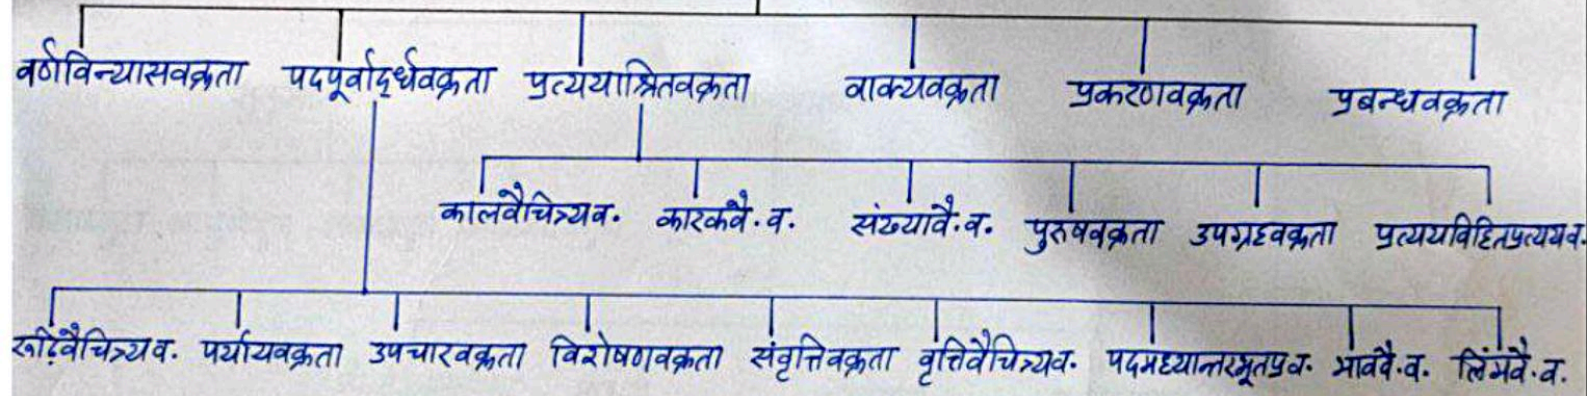 वर्णविन्यासवक्रता पदपूर्वाद्र्धवक्रता प्रत्ययाश्रितवक्रता वाक्यवक्रता प्रकरणवक्रता प्रबन्धवक्रता
कालवैचित्र्यव. कारकवै.व. संख्यावै.व. पुरुषवक्रता उपग्रहवक्रता प्रत्ययविहितप्रत्ययव.
रूढ़िवैचित्र्यव. पर्यायवक्रता उपचारवक्रता विशेषणवक्रता संवृत्तिवक्रता वृत्तिवैचित्र्यव. पदमध्यान्तरभूतप्र.व. भाववै.व. लिंगवै.व.